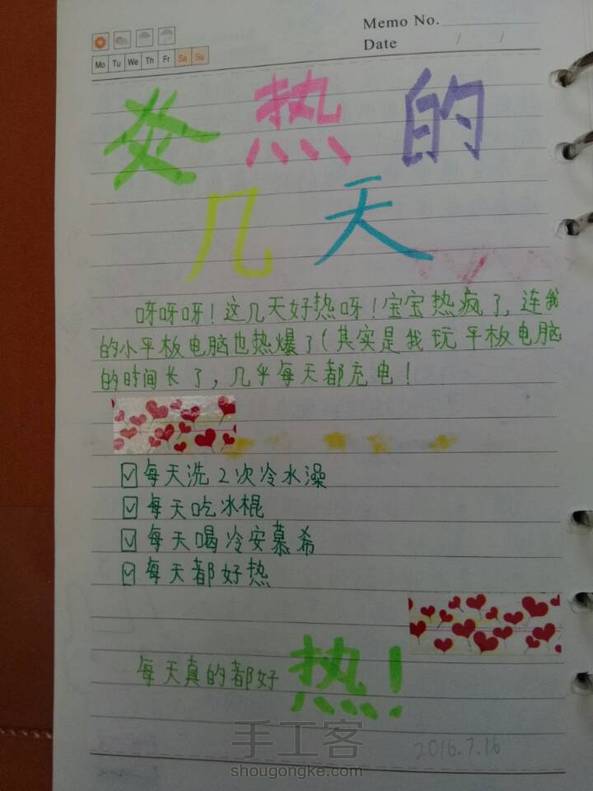 Memo No.
Date / /
Mo Tu We Th Fr Sa Su
炎热的
几天
呀呀呀！这几天好热呀！宝宝热疯了，连我
的小平板电脑也热爆了（其实是我玩平板电脑
的时间长了，几乎每天都充电！
每天洗2次冷水澡
每天吃冰棍
每天喝冷安慕希
每天都好热
每天真的都好热！
2016.7.16
手工客
shougongke.com